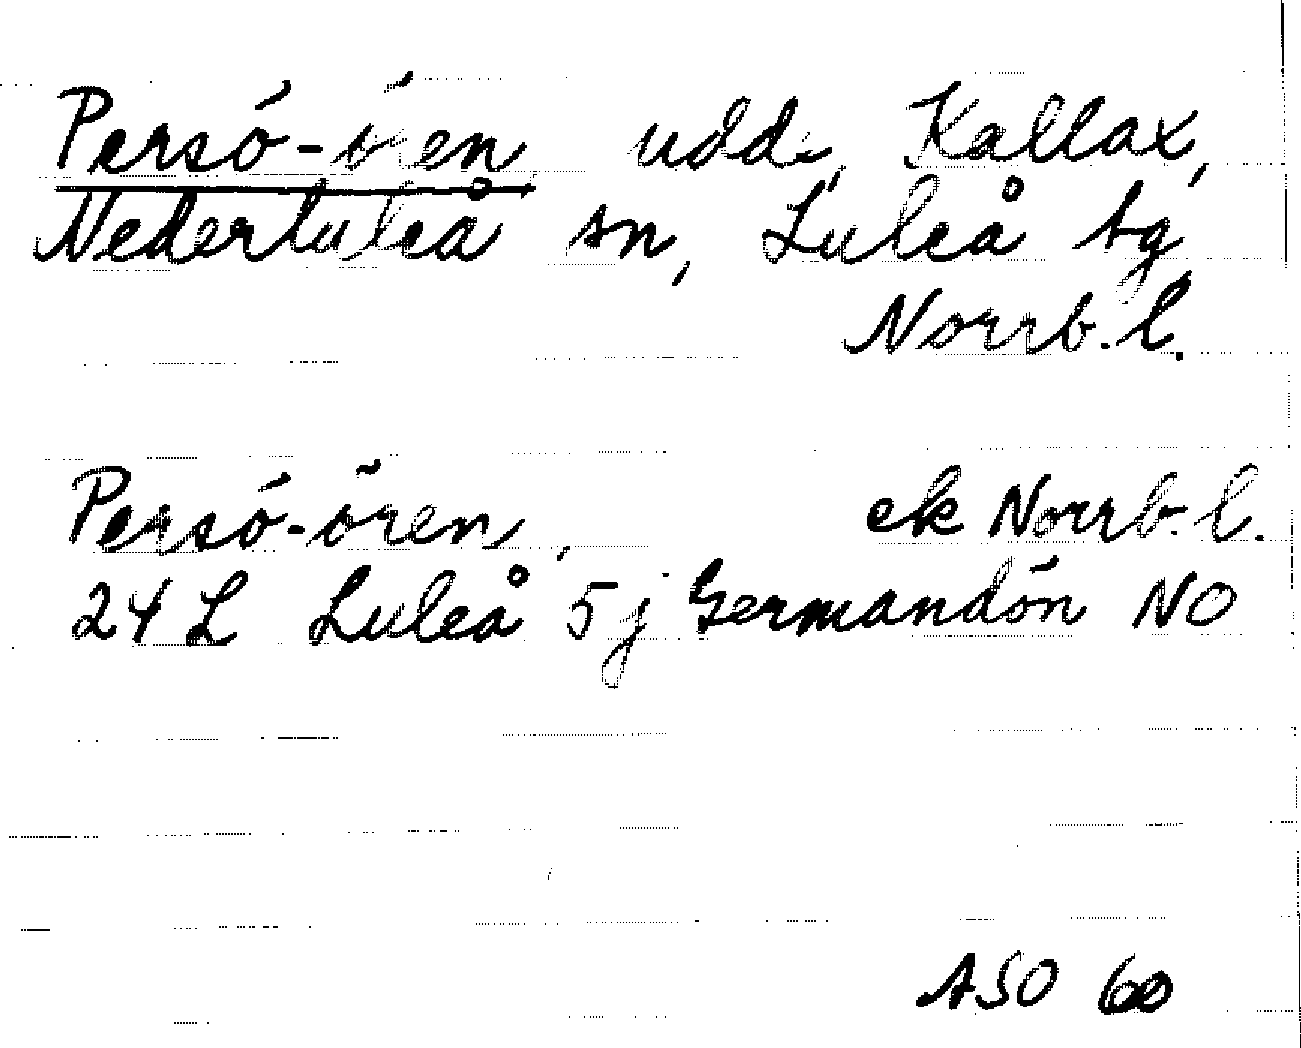 Persö-ören udde, Kallax,
Nederluleå sn, Luleå tg
Norrb. l.
Persö-ören, ek Norrb. l.
24 L Luleå 5j Germandön NO
ASO 60